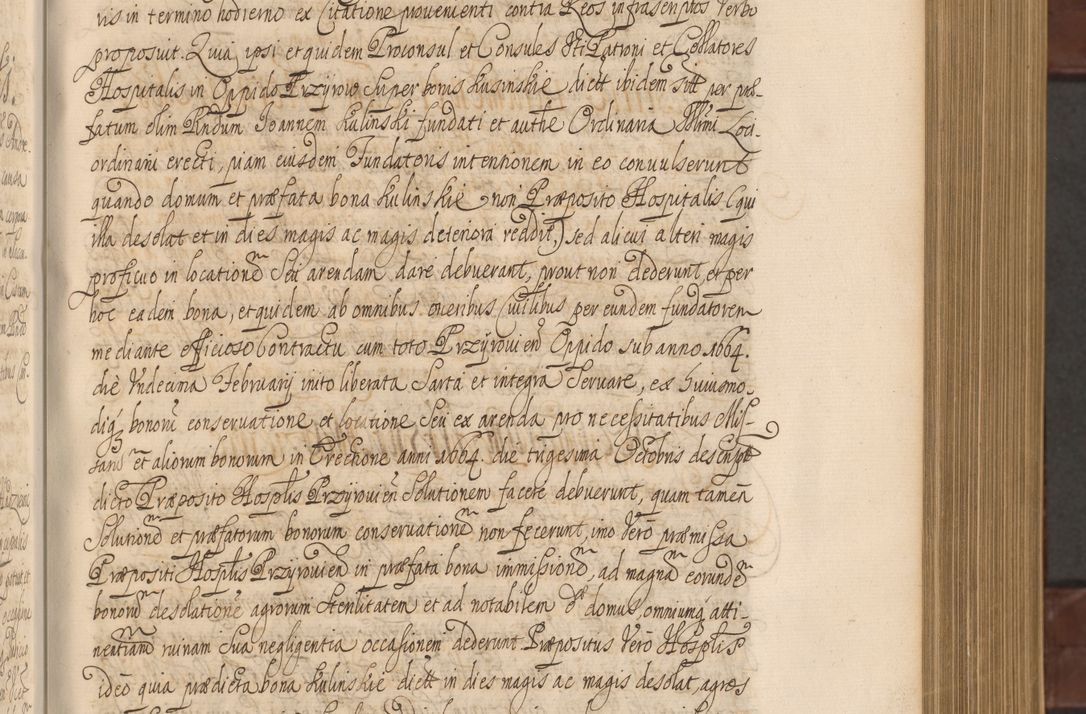 ris in termino hodierno ex Citatione provenienti contra Reos infrascriptos Verbo
proposuit. Quia ipsi et quidem Proconsul et Consules Uti Patroni et Collatores
Hospitalis in Oppido Przyrow Super bonis Kulinskie dictt ibidem sitt per præ-
fatum olim Rndum Joannem Kulinski fundati et authe Ordinaria Illmi Loci
ordinarii erecti, piam eiusdem Fundatoris intentionem in eo convulserunt
quando domum et præfata bona Kulinskie non Præposito Hospitalis (qui
illa desolat et in dies magis ac magis deteriora reddit,) sed alicui alteri magis
proficuo in locationẽ Seu arendam dare debuerant, prout non dederunt, et per
hoc eadem bona, et quidem ab omnibus oneribus Civilibus per eundem fundatorem
mediante officioso Contractu cum toto Przyrovien Oppido sub anno 1664.
die Undecima February inito liberata Sarta et integra Servare, ex huiusmo-
diq bonorũ conservatione et locatione Seu ex arenda pro necessitatibus Mis-
saru et aliorum bonorum in Erectione anni 1664. die trigesima Octobris descript
dicto Præposito Hosplis Przyrovien Solutionem facere debuerunt, quam tamen
Solutionẽ et præfatorum bonorum conservationẽ non fecerunt, imo Vero præmissa
Præpositi Hosplis Przyrovien in præfata bona immissionẽ, ad magnã eorundẽ
bonorũ desolationẽ agrorum Sterilitatem et ad notabilem domus omniumq atti-
nentiarũ ruinam Sua negligentia occasionem dederunt. Præpositus Vero Hosplis
ideo quia prædicta bona Kulinskie dictt in dies magis ac magis desolat, agros